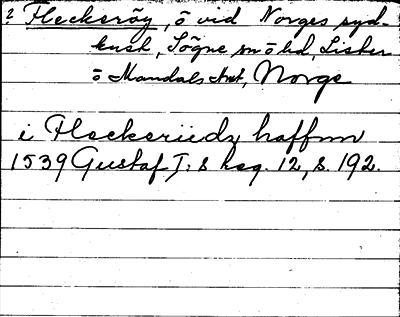 ? Fleckeröy, ö vid Norges syd-
kust, Sögne snöhd, Lister
o Mandals Amt, Norge
i Fleckeriiedz haffnn
1539 Gustaf I:s reg. 12, s. 192.